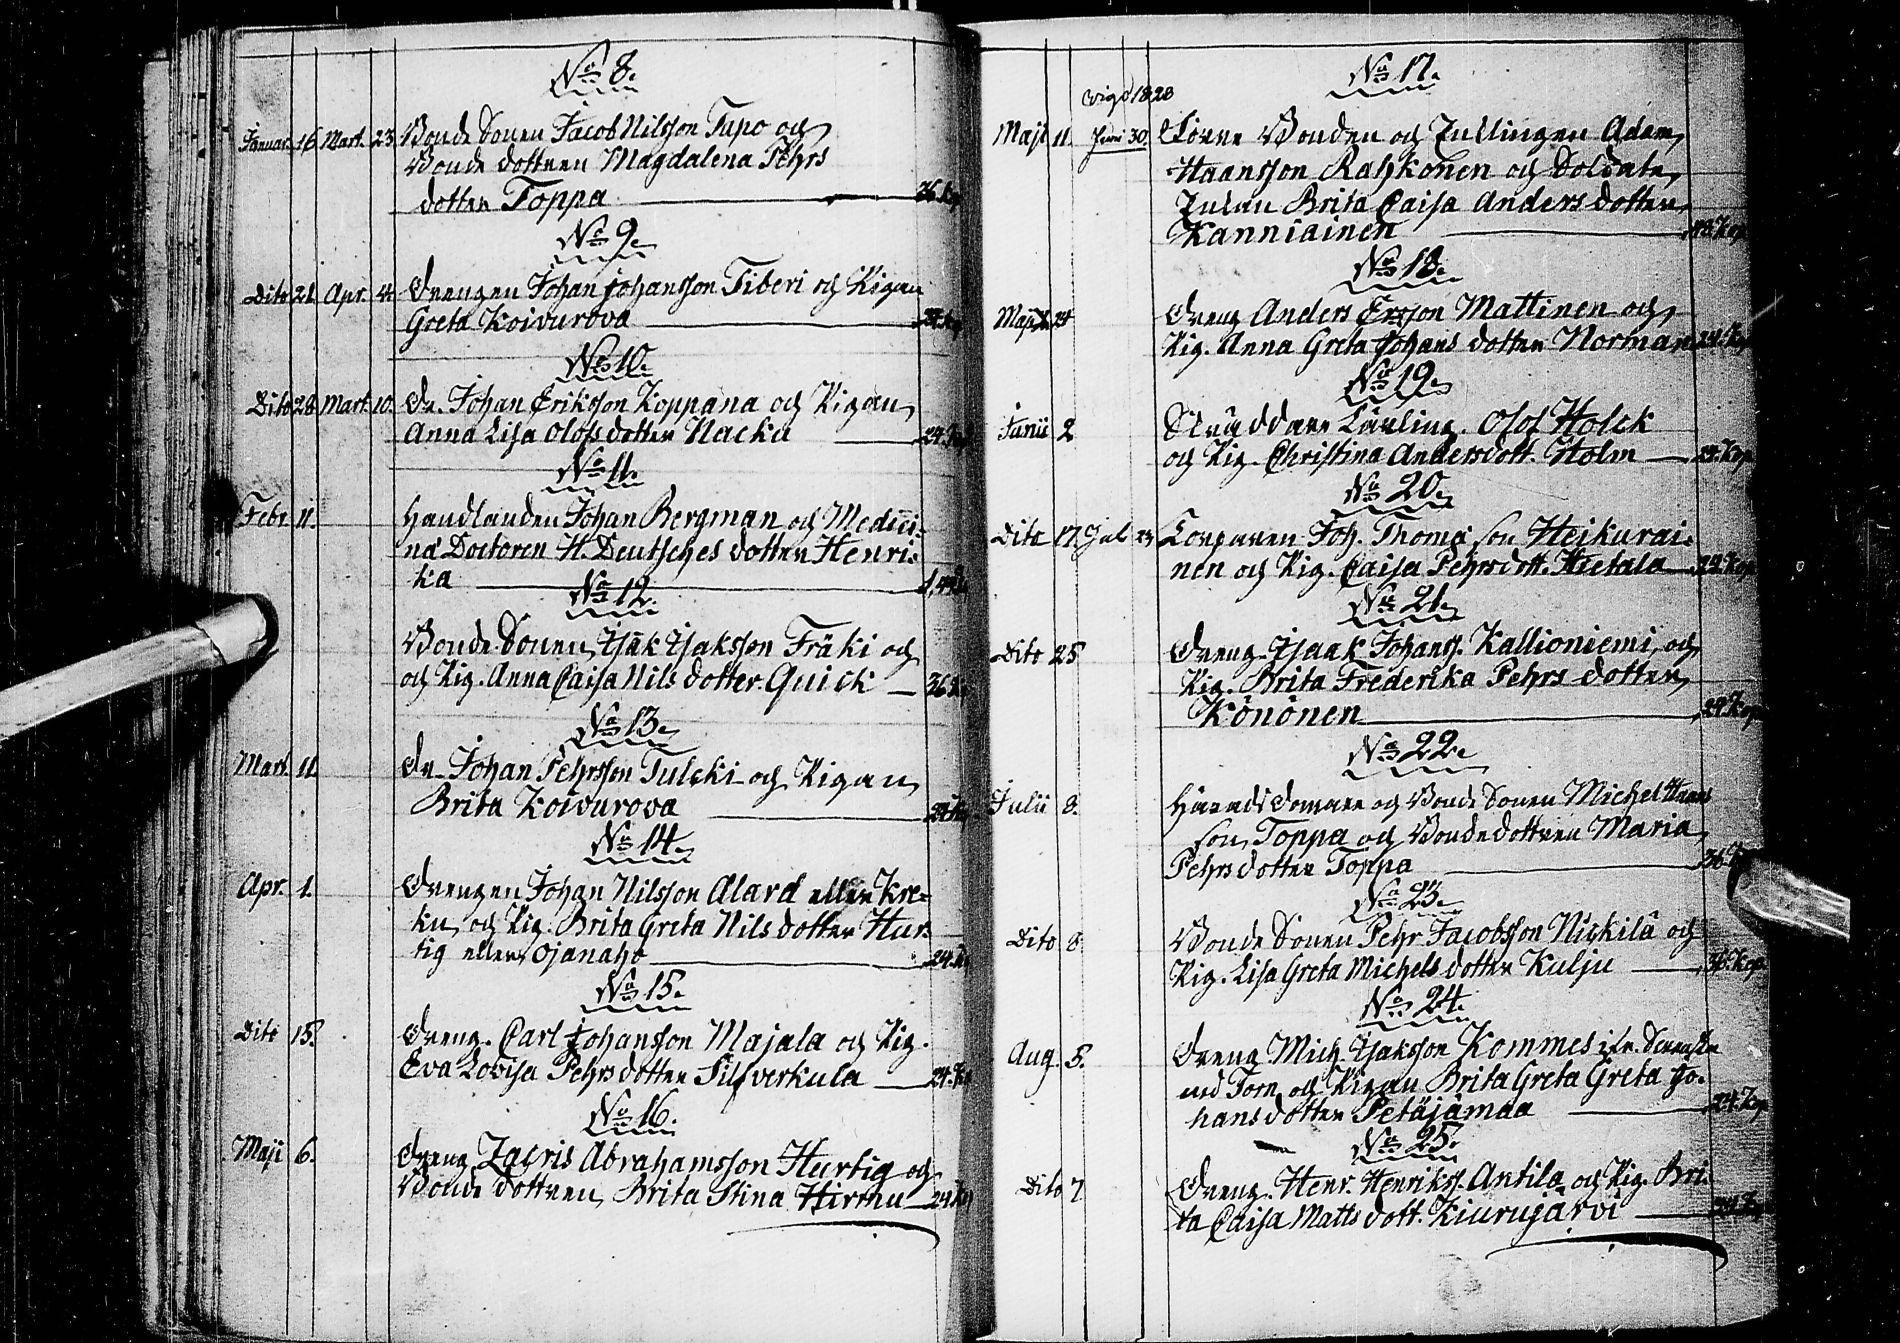 No 8.
Januar. 16 Mart. 23 Bonde Sonen Jacob Nilsson Tapo och
Bonde dottren Magdalena Pehrs
dotter Toppa 36 Kop
No 9.
Dito 21 Apr. 4 Drengen Johan Johansson Tiberi och Pigan
Greta Koivurova 24 Kop
No 10.
Dito 28 Mart. 10 Dr. Johan Eriksson Koppana och Pigan
Anna Lisa Olofsdotter Nacka 24 Kop
No 11.
Febr 11. Handlanden Johan Bergman och Medici-
næ Doctoren H. Deutsches dotter Henri-
ka
No 12.
Bonde Sonen Isak Isaksson Fräki och
och Pig. Anna Caisa Nils dotter Quick 36 K
No 13.
Mart. 11. Dr. Johan Pehrsson Tulcki och Pigan
Brita Koivurova 24 Kop
No 14.
Apr. 1. Drengen Johan Nilsson Alard eller Kre-
ku och Pig. Brita Greta Nils dotter Hur-
tig eller Ojanaho 24 K
No 15.
Dito 15. Dreng. Carl Johansson Majala och Pig.
Eva Lovisa Pehrs dotter Silfverkula 24. K
No 16.
Maji 6. Dreng Zacris Abrahamsson Hurtig och
Bonde dottren Brita Stina Hirmu 24 K
No 17.
vigd 1828
Maji 11. Juni 30. Förre Bonden och Inllingen Adam
Haansson Rahkonen och Soldate
Inkan Brita Caisa Anders dotter
Kanniainen Kop
No 18.
Maji 24 Dreng Anders Ersson Mattinen och
Pig. Anna Greta Johans dotter Norman 24. Kop
No 19.
Junii 2 Skräddare Lärling. Olof Holck
och Pig. Christina Andersdott. Holm 24. Kop
No 20.
Dito 17. Jul Torparen Joh. Thomæ son Heikurai-
nen och Pig. Caisa Pehrsdott. Hietala 24 Kop
No 21.
Dito 25 Dreng Isaak Johanss. Kallioniemi, och
Pig. Brita Frederika Pehrs dotter
Könönen 24 Kop
No 22.
Julii 8. Häradsdomare och Bonde Sonen Michel Haans
son Toppa och Bonde dottren Maria
Pehrs dotter Toppa 36 K
No 23.
Dito 8 Bonde Sonen Pehr Jacobsson Nickilä och
Pig. Lisa Greta Michels dotter Kulju 36. Kop.
No 24.
Aug. 5. Dreng Mich. Isaksson Kommes
ned Torn. och Pigan Brita Greta Greta Jo-
hans dotter Petäjämaa 24. Kop
No 25.
Dito 7 Dreng. Henr. Henrikss. Antila och Pig. Bri-
ta Caisa Matts dott. Kiurujärvi 24. Kop